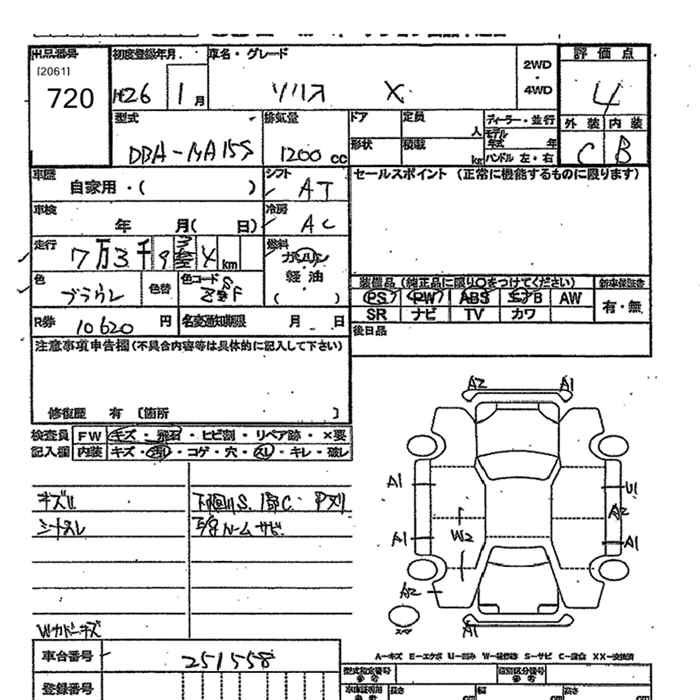 出品番号
[2061]
720
初度登録年月
H26 1月
車名・グレード
ソリオ X
2WD
・
4WD
評価点
4
外装 内装
C B
型式
DBA-MA15S
排気量
1200 cc
ドア 定員 人
形状 積載 kg
ディーラー・並行
モデル年式 年
ハンドル 左・右
車歴
自家用・( )
シフト
AT
車検
年 月( 日)
冷房
AC
走行
7万3千9百 4 km
燃料
ガソリン
軽油
( )
色
ブラウン
色替
色コード
R券 10620 円
名変通知期限 月 日
セールスポイント (正常に機能するものに限ります)
装備品 (純正品に限り○をつけてください)
新車保証書
PS PW ABS エアB AW
有・無
SR ナビ TV カワ
後日品
注意事項申告欄(不具合内容等は具体的に記入して下さい)
修復歴 有 〔箇所 〕
検査員 FW キズ・飛石・ヒビ割・リペア跡・×要
記入欄 内装 キズ・汚れ・コゲ・穴・スレ・キレ・破レ
キズU
シートスレ
下廻りS.
ルームサビ
Wカバーキズ
A2 A1
A1 U1
A2
A1 W2 A1
A2
スペア
A1
A-キズ E-エクボ U-凹み W-補修跡 S-サビ C-腐食 XX-交換済
車台番号 251558
登録番号
型式指定番号
類別区分番号
長さ cm 幅 cm 高さ